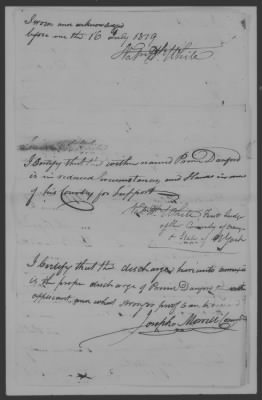 Sworn and acknowledged
before me this 16 July 1819
Nat. H. White
I Certify that the within named Prime Danford
is in reduced Circumstances and Stands in need
of his Country for Support
White First Judge
of the County of
& State of N York
I Certify that the discharge herewith annexed
is the proper discharge of Prime Danford the within
applicant and what stronger proof can be
Joseph Morrell